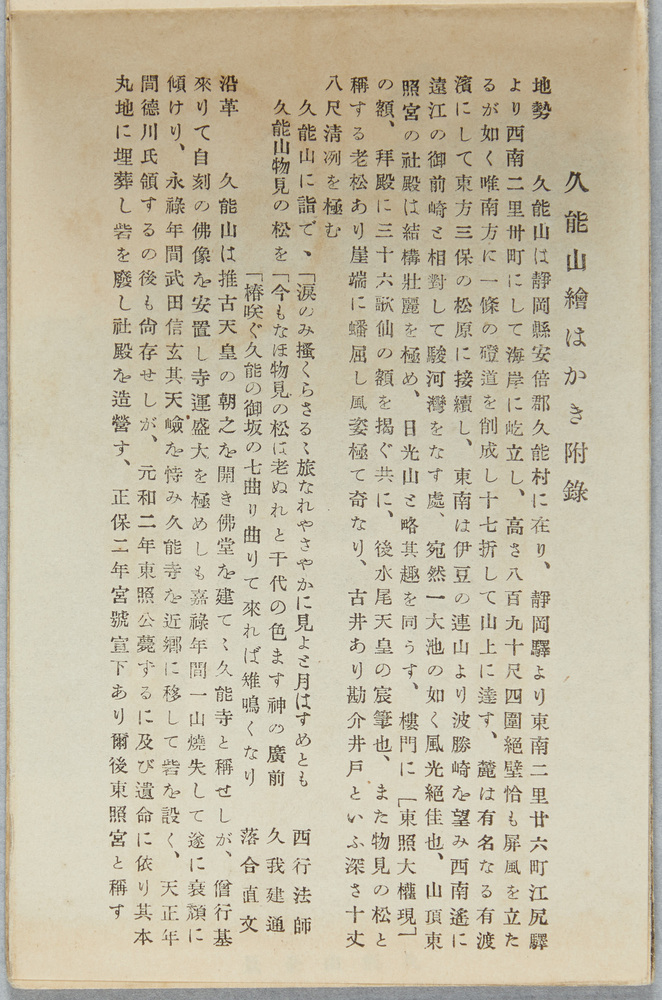 久能山繪はかき附錄
地勢　久能山は靜岡縣安倍郡久能村に在り、靜岡驛より東南二里廿六町江尻驛
より西南二里卅町にして海岸に屹立し、高さ八百九十尺四圍絕壁恰も屏風を立た
るが如く唯南方に一條の磴道を削成し十七折して山上に達す、麓は有名なる有渡
濱にして東方三保の松原に接續し、東南は伊豆の連山より波勝崎を望み西南遙に
遠江の御前崎と相對して駿河灣をなす處、宛然一大池の如く風光絕佳也、山頂東
照宮の社殿は結構壯麗を極め、日光山と略其趣を同うす、樓門に「東照大權現」
の額、拜殿に三十六歌仙の額を揭ぐ共に、後水尾天皇の宸筆也、また物見の松と
稱する老松あり崖端に蟠屈し風姿極て奇なり、古井あり勘介井戸といふ深さ十丈
八尺淸冽を極む
久能山に詣で、「淚のみ搔くらさるゝ旅なれやさやかに見よと月はすめとも　西行法師
久能山物見の松を「今もなほ物見の松は老ぬれと千代の色ます神の廣前　久我建通
「椿咲ぐ久能の御坂の七曲り曲りて來れば雉鳴くなり　落合直文
沿革　久能山は推古天皇の朝之を開き佛堂を建てゝ久能寺と稱せしが、僧行基
來りて自刻の佛像を安置し寺運盛大を極めしも嘉祿年間一山燒失して遂に衰頹に
傾けり、永祿年間武田信玄其天嶮を恃み久能寺を近鄕に移して砦を設く、天正年
間德川氏領するの後も尙存せしが、元和二年東照公薨ずるに及び遺命に依り其本
丸地に埋葬し砦を廢し社殿を造營す、正保二年宮號宣下あり爾後東照宮と稱す